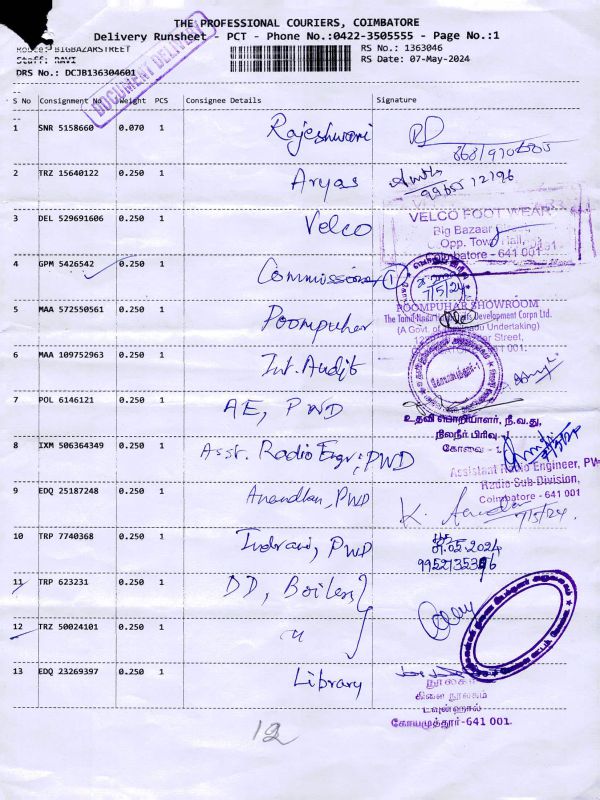 THE PROFESSIONAL COURIERS, COIMBATORE
Delivery Runsheet - PCT - Phone No.:0422-3505555 - Page No.:1
Route: BIGBAZARSTREET
RS No.: 1363046
Staff: RAVI
RS Date: 07-May-2024
DRS No.: DCJB136304601
DOCUMENT DELIVERY
S No Consignment No Weight PCS Consignee Details Signature
1 SNR 5158660 0.070 1 Rajeshwari
2 TRZ 15640122 0.250 1 Aryas
3 DEL 529691606 0.250 1 Velco
VELCO FOOT WEAR
Big Bazaar
Opp. Town Hall,
Coimbatore - 641 001
4 GPM 5426542 0.250 1 Commissioner 1
7/5/24
5 MAA 572550561 0.250 1 Poompuhar
POOMPUHAR SHOWROOM
The Tamil Nadu Development Corpn Ltd.
(A Govt. of Undertaking)
Street,
001.
6 MAA 109752963 0.250 1 Int. Audit
7 POL 6146121 0.250 1 AE, PWD
உதவி பொறியாளர், நீ.வ.து,
நிலநீர் பிரிவு
கோவை - 1.
8 IXM 506364349 0.250 1 Asst. Radio Engr, PWD
Assistant Radio Engineer, PW
Radio Sub-Division,
Coimbatore - 641 001
9 EDQ 25187248 0.250 1 Anandhan, PWD
7/5/24.
10 TRP 7740368 0.250 1 Indrani, PWD
07.05.2024
11 TRP 623231 0.250 1 DD, Boilers
12 TRZ 50024101 0.250 1 "
13 EDQ 23269397 0.250 1 Library
கிளை நூலகம்
டவுன்ஹால்
கோயமுத்தூர்-641 001.
12